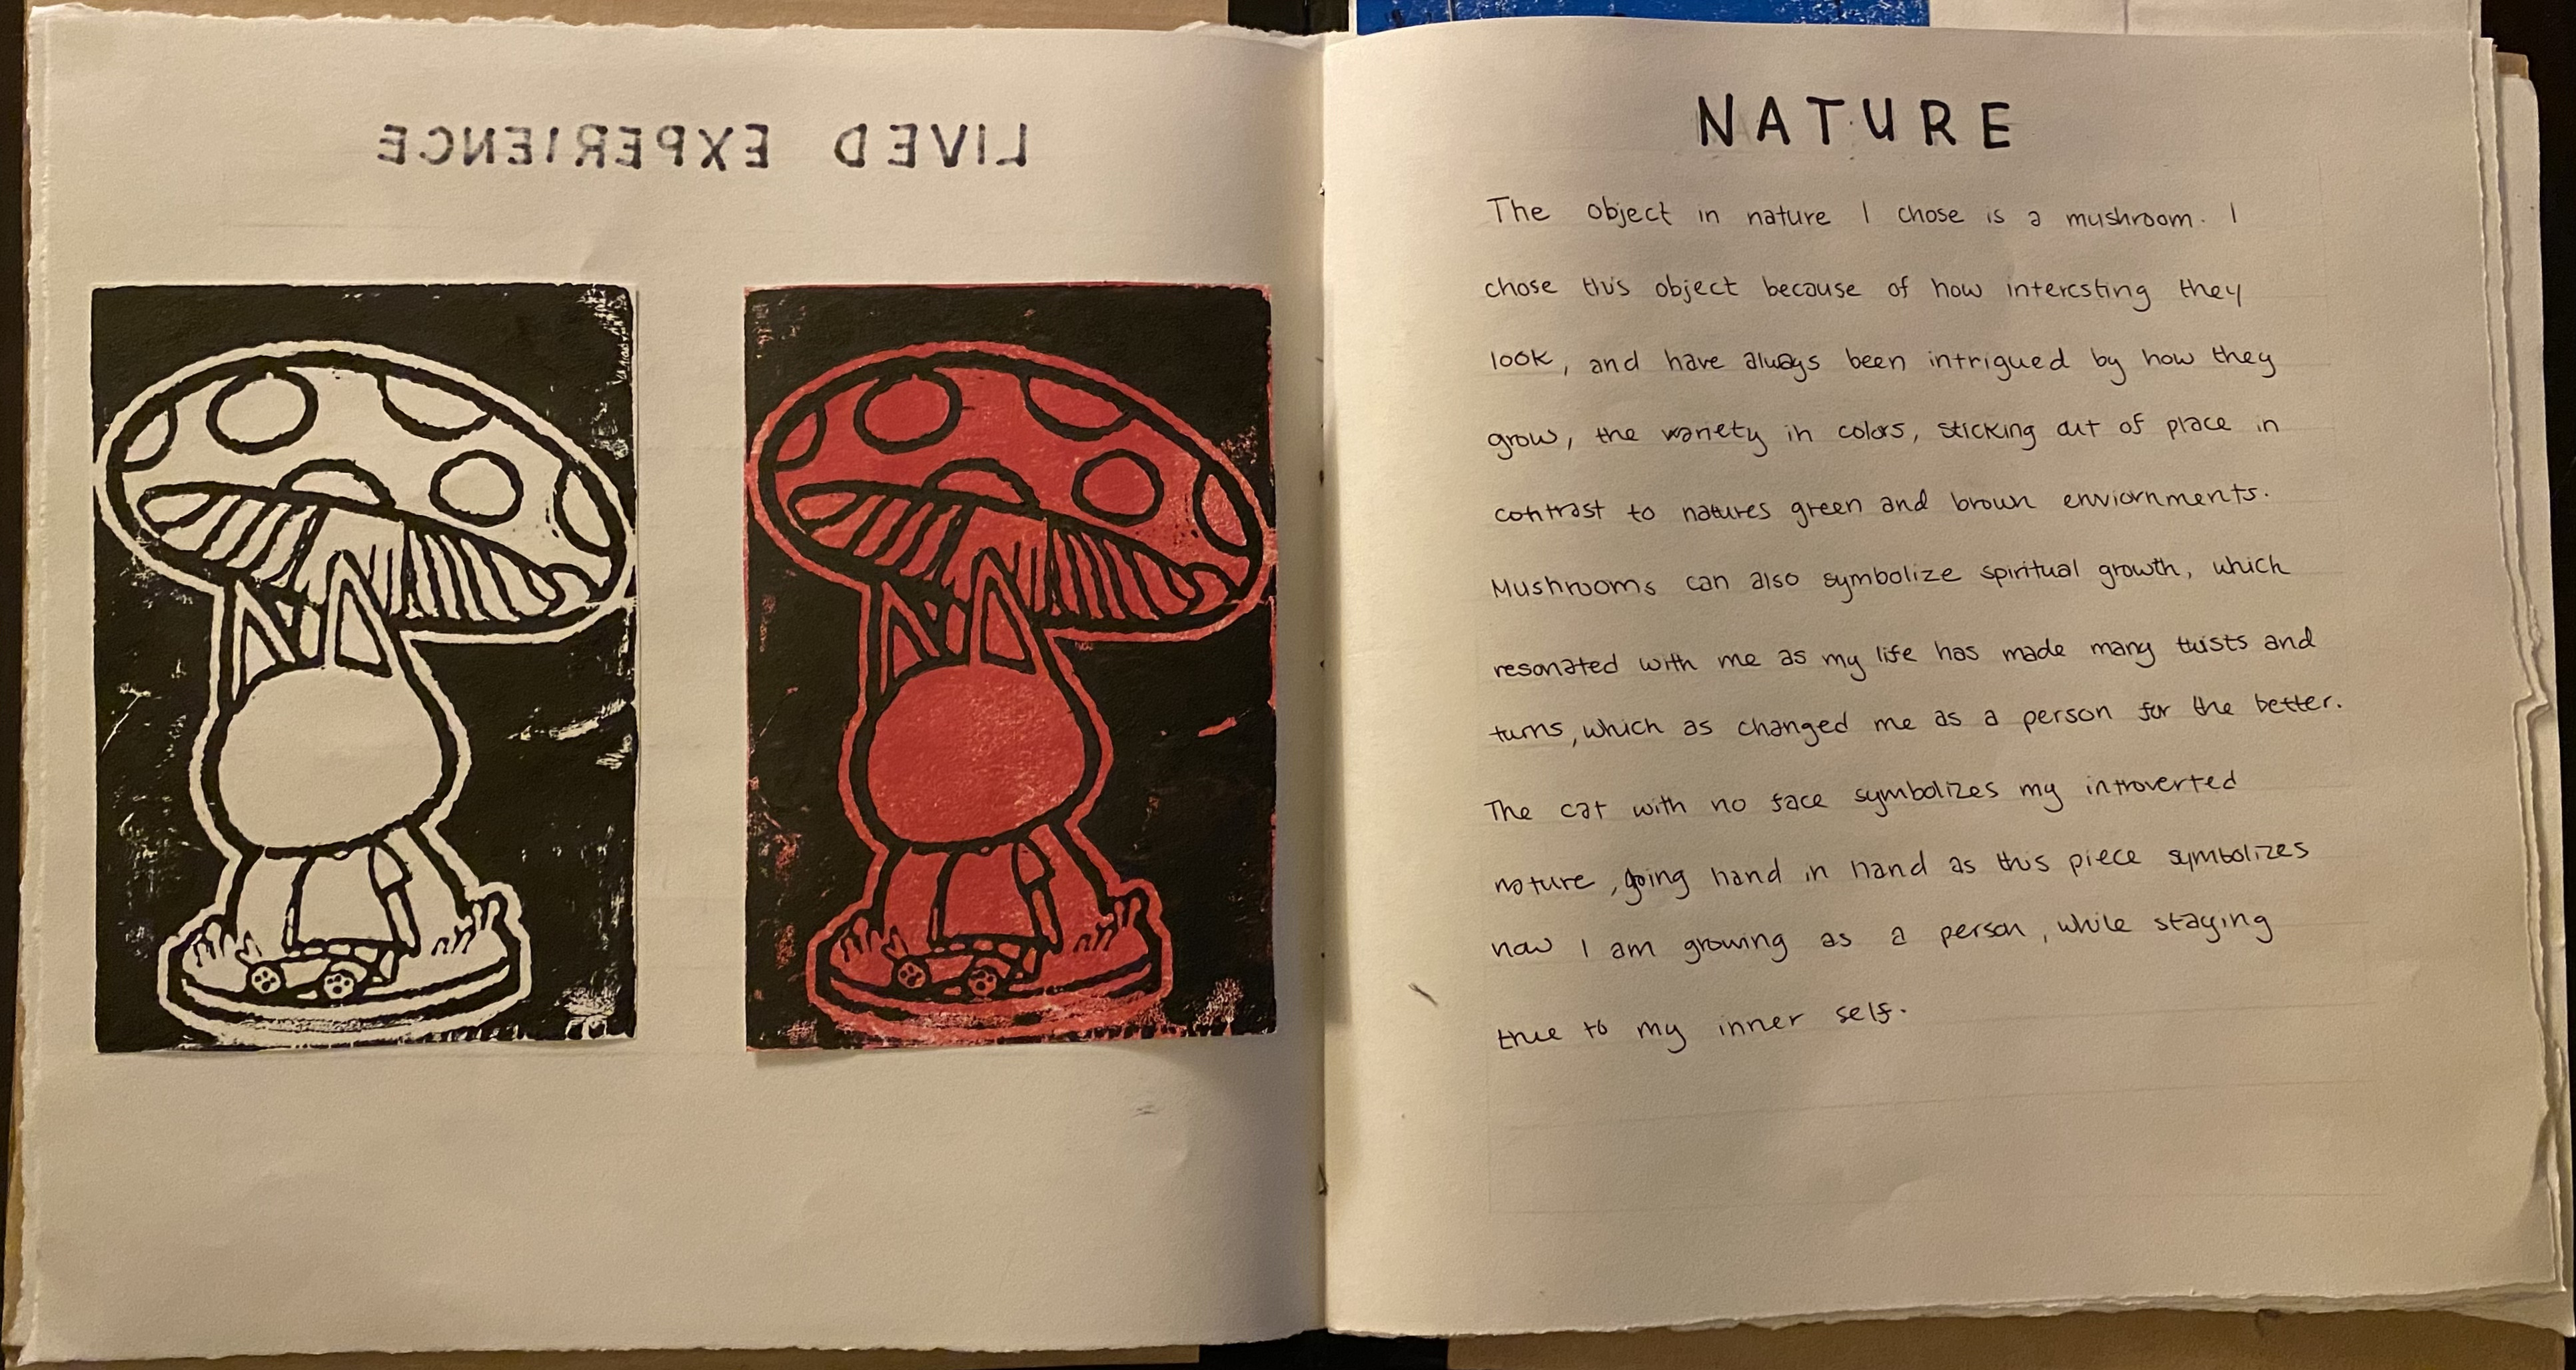 LIVED EXPERIENCE
NATURE
The object in nature I chose is a mushroom. I
chose this object because of how interesting they
look, and have always been intrigued by how they
grow, the variety in colors, sticking out of place in
contrast to natures green and brown enviornments.
Mushrooms can also symbolize spiritual growth, which
resonated with me as my life has made many twists and
turns, which as changed me as a person for the better.
The cat with no face symbolizes my introverted
nature, going hand in hand as this piece symbolizes
how I am growing as a person, while staying
true to my inner self.